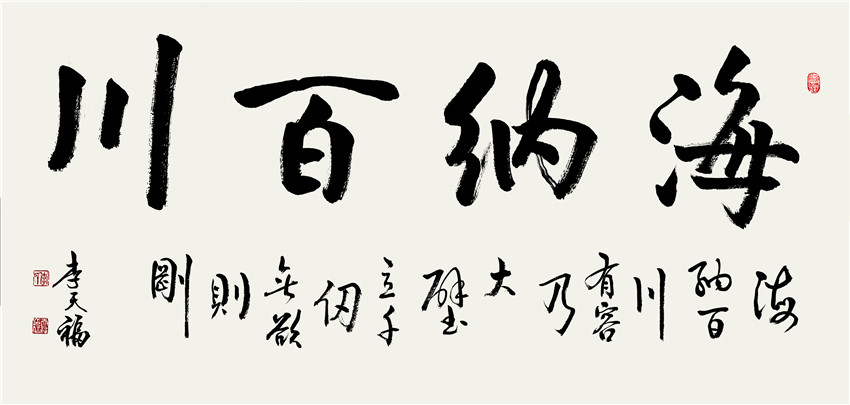 海納百川
海納百川有容乃大壁立千仞無欲則剛
李天福